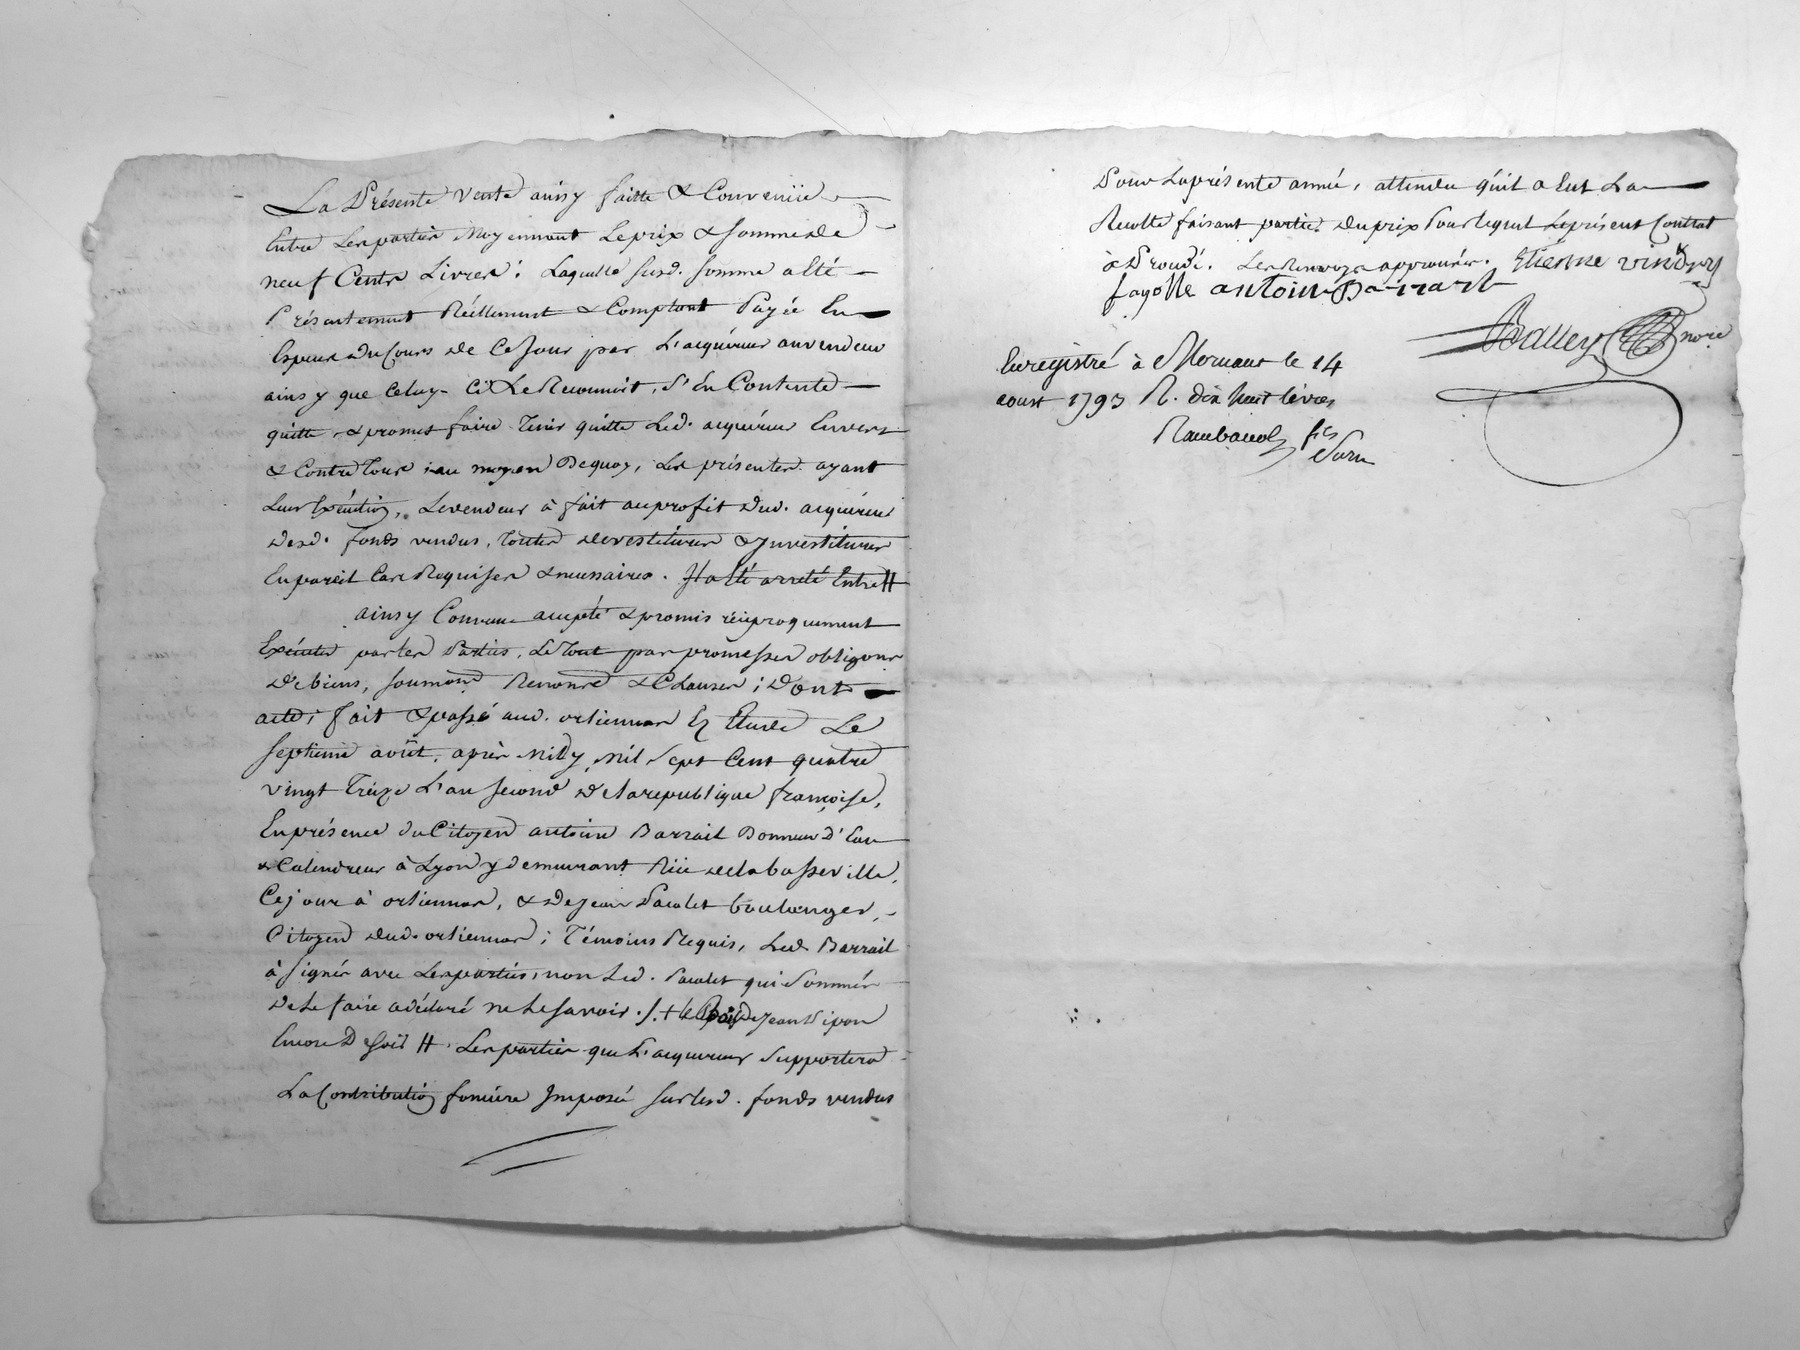 La Présente vente ainsy faitte & Convenüe
Entre Les parties Moyennant Le prix & somme de
neuf Cents Livres ; Laquelle susd. somme a été
Présentement Réellement & Comptant Payée En
Especes du Cours de Ce Jour par L'acquéreur au vendeur
ainsy que Celuy-Ci Le Reconnoit, s'En Contente
quitte, & promet faire Tenir quitte Led. acquéreur Envers
& Contre Tous ; au moyen Dequoy, Les présentes ayant
Leur Exécution, Le vendeur à fait au profit Dud. acquéreur
Desd. fonds vendus, toutes devestitures & Jnvestitures
En pareil Cas Requises & necessaires. Jl a été arreté Entre #
ainsy Convenu accepté & promis réciproquement
Exécuter par les Parties, Le Tout par promesses obligons
De biens, soumons Renons & Clauses ; Dont
acte ; fait & passé aud. orliennas En Etude Le
septieme août, après Midy, Mil Sept Cent quatre
vingt Treize L'an second De la republique françoise,
En présence du Citoyen antoine Barrail Donneur D'Eau
& Calendreur à Lyon y demeurant Rüe de la basse ville,
Ce jour à orliennas, & De Jean Paulet boulanger,
Citoyen dud. orliennas ; Témoins Requis, Led. Barrail
à signér avec Les parties, non Led. Paulet qui Sommér
De Le faire a déclaré ne Le savoir ./. + de Jean
Encore D soit # Les parties que L'acquereur Supportera
La Contribution fonciére Jmposée sur Lesd. fonds vendus
Pour La présente année, attendu qu'il a Eut La
Recolte faisant partie du prix Pour lequel Le présent Contrat
à Procédé. Les Renvoys approuvés. Etienne vindry
fayolle antoine Barrail
Balley nore
Enregistré à Mornant le 14
aoust 1793 R. dix huit livres
Raimbaud fils